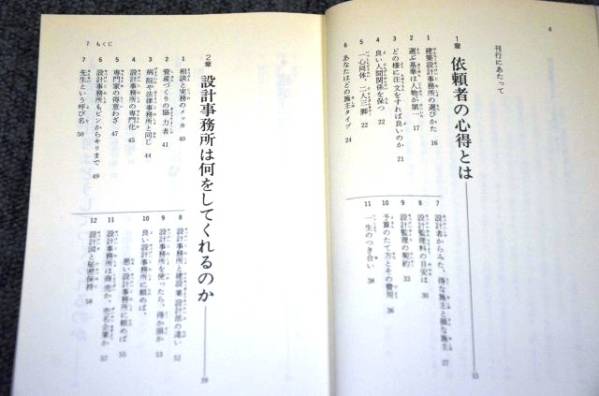 6
刊行にあたって
1章 依頼者の心得とは 15
1 建築設計事務所の選びかた 16
2 選ぶ基準は人物が第一 17
3 どの様に注文をすれば良いのか 21
4 良い人間関係を保つ 22
5 一心同体、二人三脚 22
6 あなたはどの施主タイプ 24
7 設計者からみた、得な施主と損な施主 27
8 設計監理料の目安は 30
9 設計監理の契約 33
10 予算のたて方とその費用 36
11 一生のつき合い 38
7 もくじ
2章 設計事務所は何をしてくれるのか 39
1 相談と業務のメッカ 40
2 資産づくりの協力者 41
3 病院や法律事務所と同じ 44
4 設計事務所の専門化 45
5 専門家の得意わざ 47
6 設計事務所もピンからキリまで 49
7 先生という呼び名 50
8 設計事務所と建設業設計部の違い 52
9 設計事務所を使ったら、得か損か 53
10 良い設計事務所に頼めば、
悪い設計事務所に頼めば 55
11 設計事務所は商売か、志名企業か
12 設計図と秘密保持 58